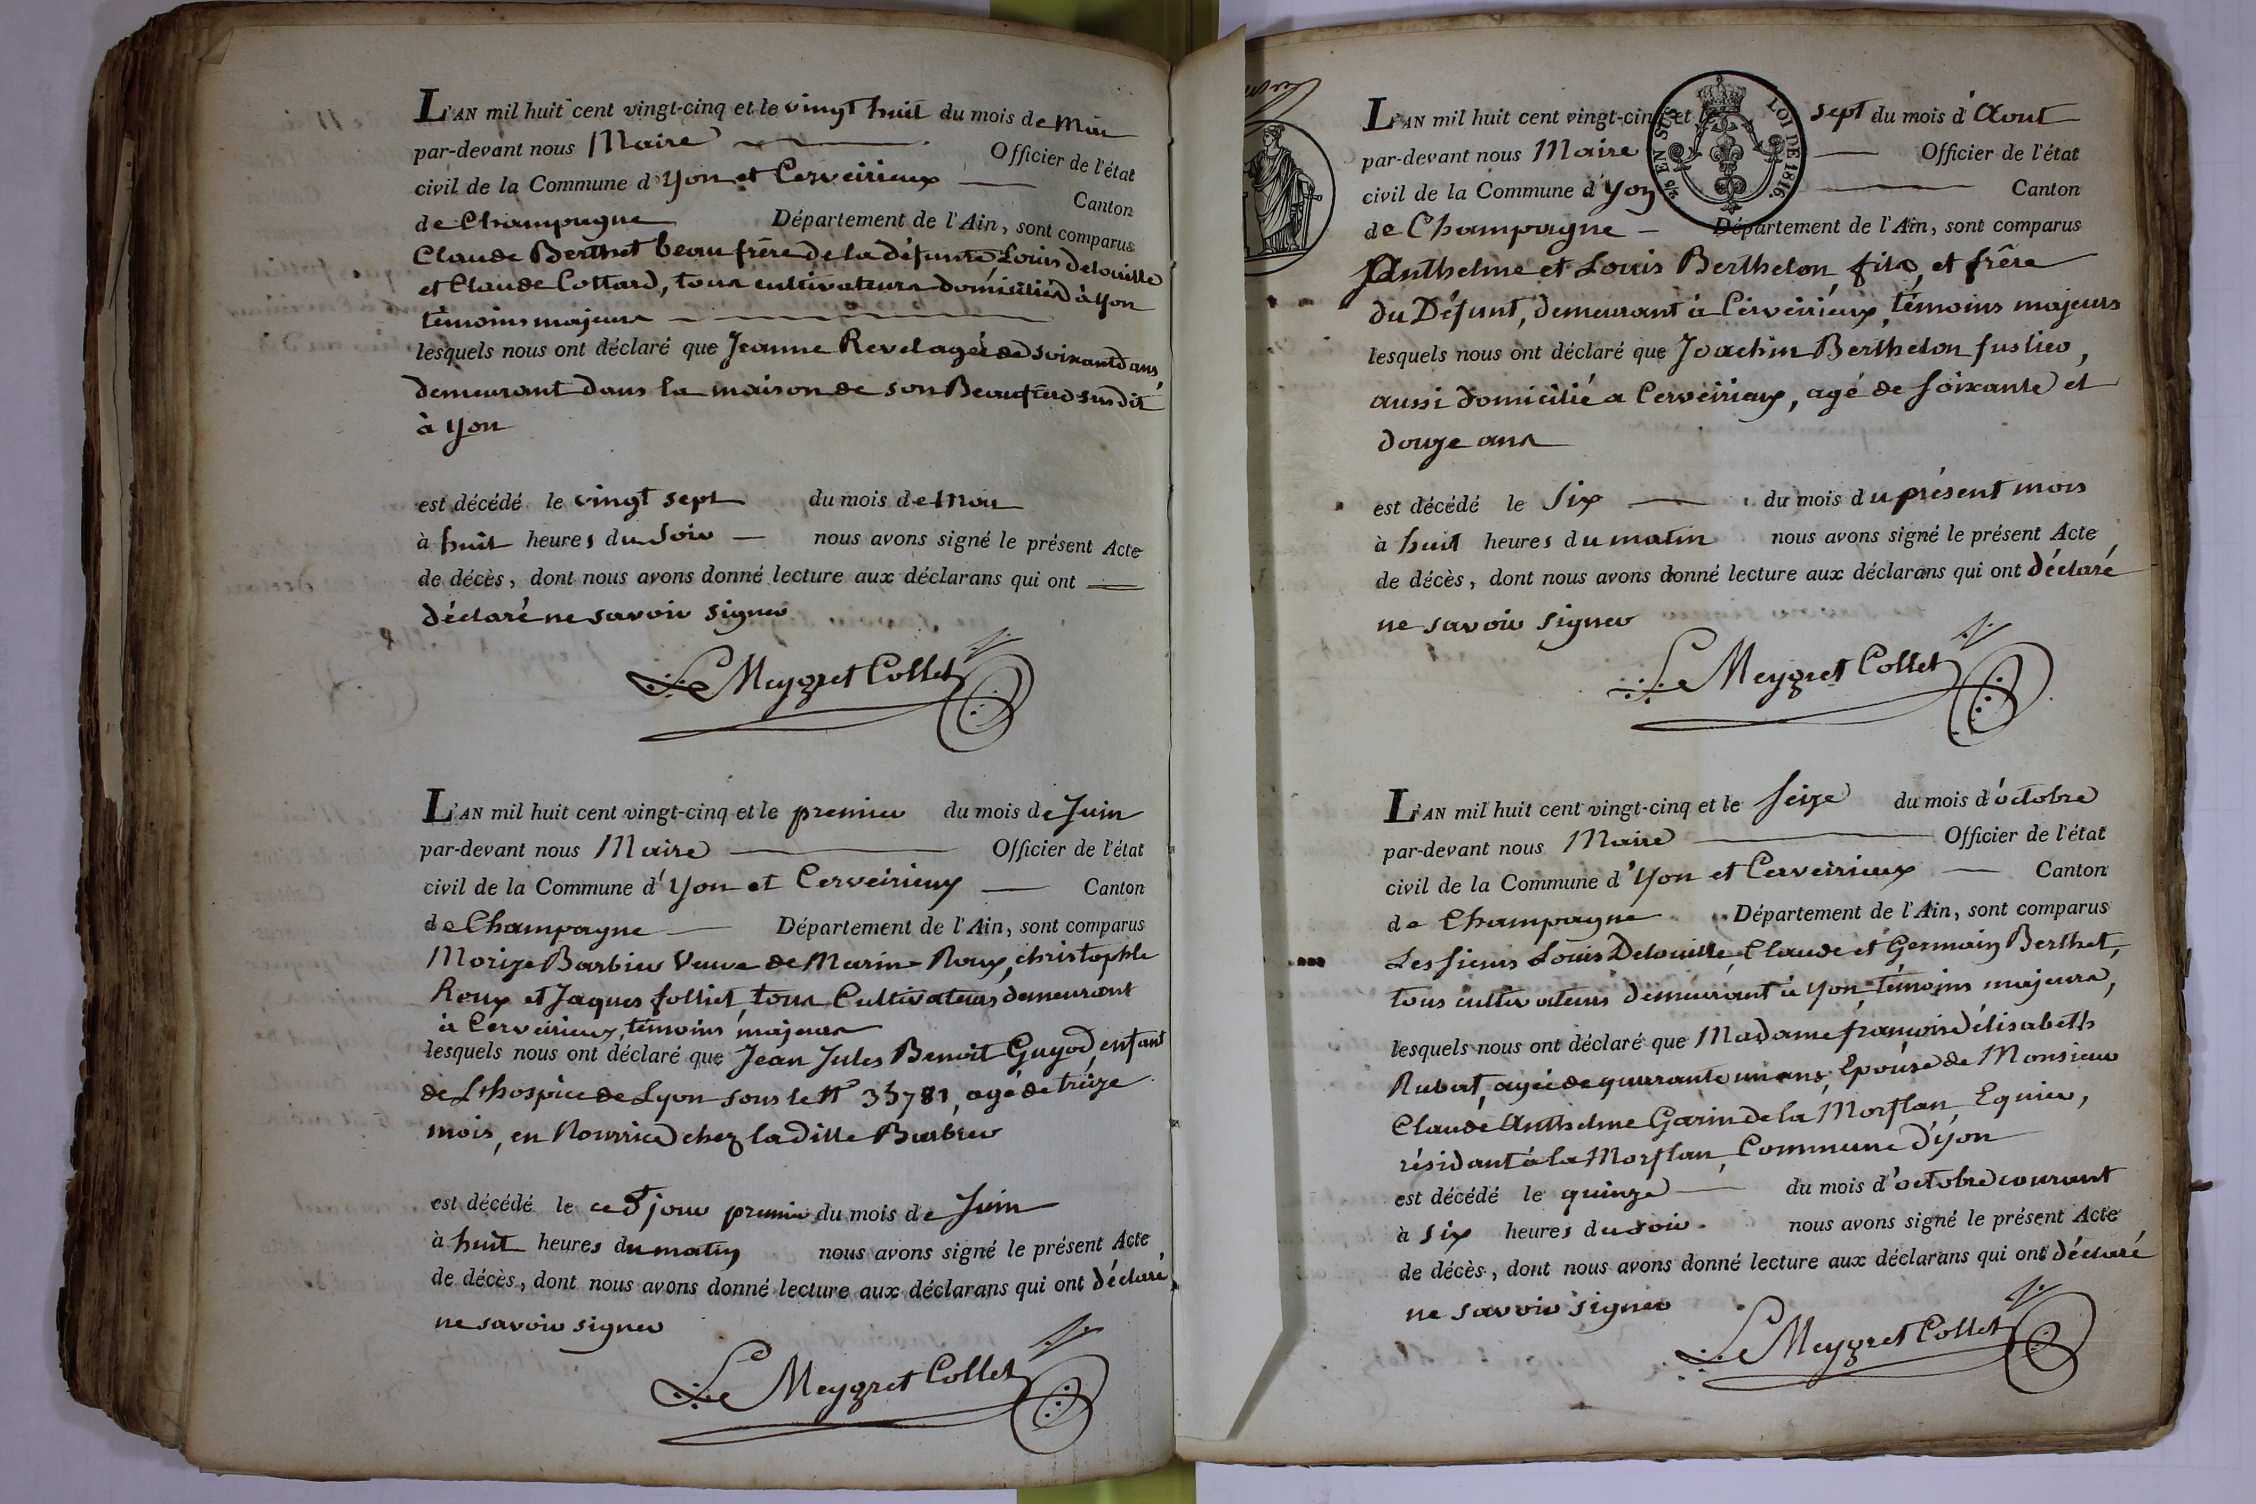 L'AN mil huit cent vingt-cinq et le vingt huit du mois de Mai
par-devant nous Maire Officier de l'état
civil de la Commune d'Yon et Cerveirieux Canton
de Champagne Département de l'Ain, sont comparus
Claude Berthet beau frère de la défunte Louis Delouille
et Claude Cottard, tous cultivateurs domiciliés à Yon
témoins majeurs
lesquels nous ont déclaré que Jeanne Revel agée de soixante ans,
demeurant dans la maison de son Beaufrere susdit
à Yon
est décédé le vingt sept du mois de Mai
à huit heures du soir nous avons signé le présent Acte
de décès, dont nous avons donné lecture aux déclarans qui ont
déclaré ne savoir signer
Le Meygret Collet
L'AN mil huit cent vingt-cinq et le premier du mois de Juin
par-devant nous Maire Officier de l'état
civil de la Commune d'Yon et Cerveirieux Canton
de Champagne Département de l'Ain, sont comparus
Morize Barbier Veuve de Marin Roux, christophle
Roux et Jaques folliet, tous Cultivateurs demeurant
à Cerveirieux, témoins majeurs
lesquels nous ont déclaré que Jean Jules Benoit Guyod, enfant
de L'hospice de Lyon sous le N° 35781, agé de treize
mois, en Nourrice chez la ditte Barbier
est décédé le cet jour premier du mois de Juin
à huit heures du matin nous avons signé le présent Acte
de décès, dont nous avons donné lecture aux déclarans qui ont déclaré
ne savoir signer
Le Meygret Collet
L'AN mil huit cent vingt-cinq et le sept du mois d'Aout
par-devant nous Maire Officier de l'état
civil de la Commune d'Yon Canton
de Champagne Département de l'Ain, sont comparus
2/5 EN SUS
LOI DE 1816.
Anthelme et Louis Berthelon, fils, et frère
du Défunt, demeurant à Cerveirieux, témoins majeurs
lesquels nous ont déclaré que Joachim Berthelon fustier,
aussi domicilié a Cerveirieux, agé de soixante et
douze ans
est décédé le Six du mois du présent mois
à huit heures du matin nous avons signé le présent Acte
de décès, dont nous avons donné lecture aux déclarans qui ont déclaré
ne savoir signer
Le Meygret Collet
L'AN mil huit cent vingt-cinq et le seize du mois d'octobre
par-devant nous Maire Officier de l'état
civil de la Commune d'Yon et Cerveirieux Canton
de Champagne Département de l'Ain, sont comparus
Les sieurs Louis Delouille, Claude et Germain Berthet,
tous cultivateurs demeurant à Yon, témoins majeurs,
lesquels nous ont déclaré que Madame françoise élisabeth
Rubat, agée de quarante un ans, Epouse de Monsieur
Claude Anthelme Garin de la Morflan, Equier,
résidant à la Morflan, Commune d'yon
est décédé le quinze du mois d'octobre courant
à six heures du soir nous avons signé le présent Acte
de décès, dont nous avons donné lecture aux déclarans qui ont déclaré
ne savoir signer
Le Meygret Collet